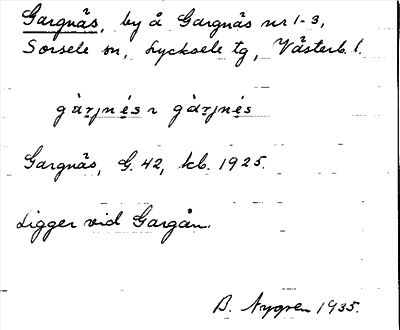 Gargnäs, by å Gargnäs nr 1-3,
Sorsele sn, Lycksele tg, Västerb. l.
Gargnäs, G. 42, kb. 1925.
Ligger vid Gargån.
B. Nygren 1935.